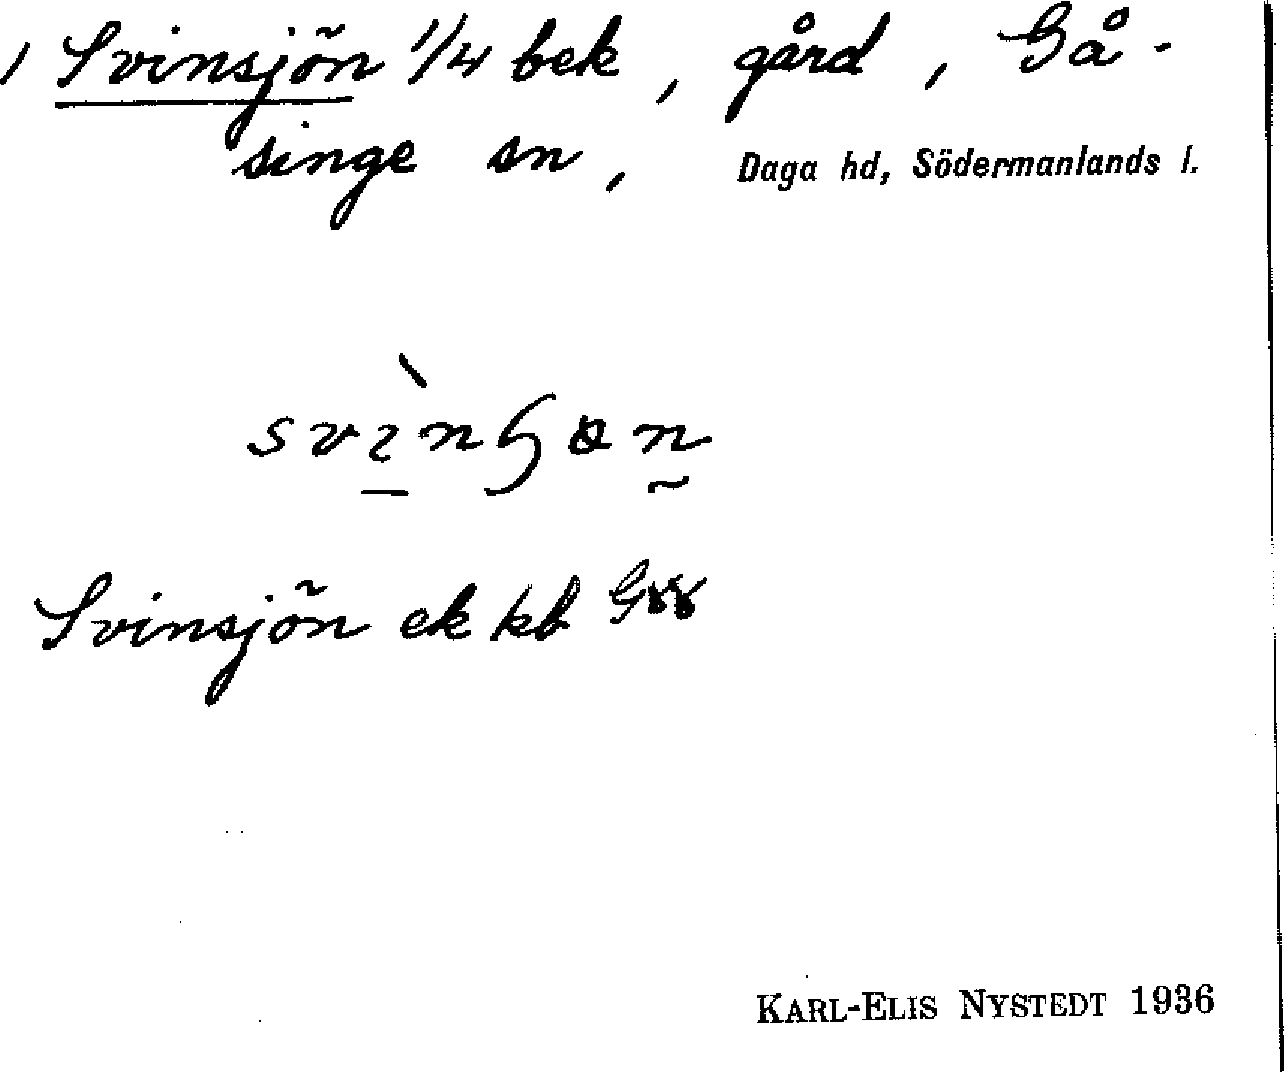 1 Svinsjön 1/4 bek, gård, Gå-
singe sn, Daga hd, Södermanlands l.
Svinsjön ek kb
KARL-ELIS NYSTEDT 1936